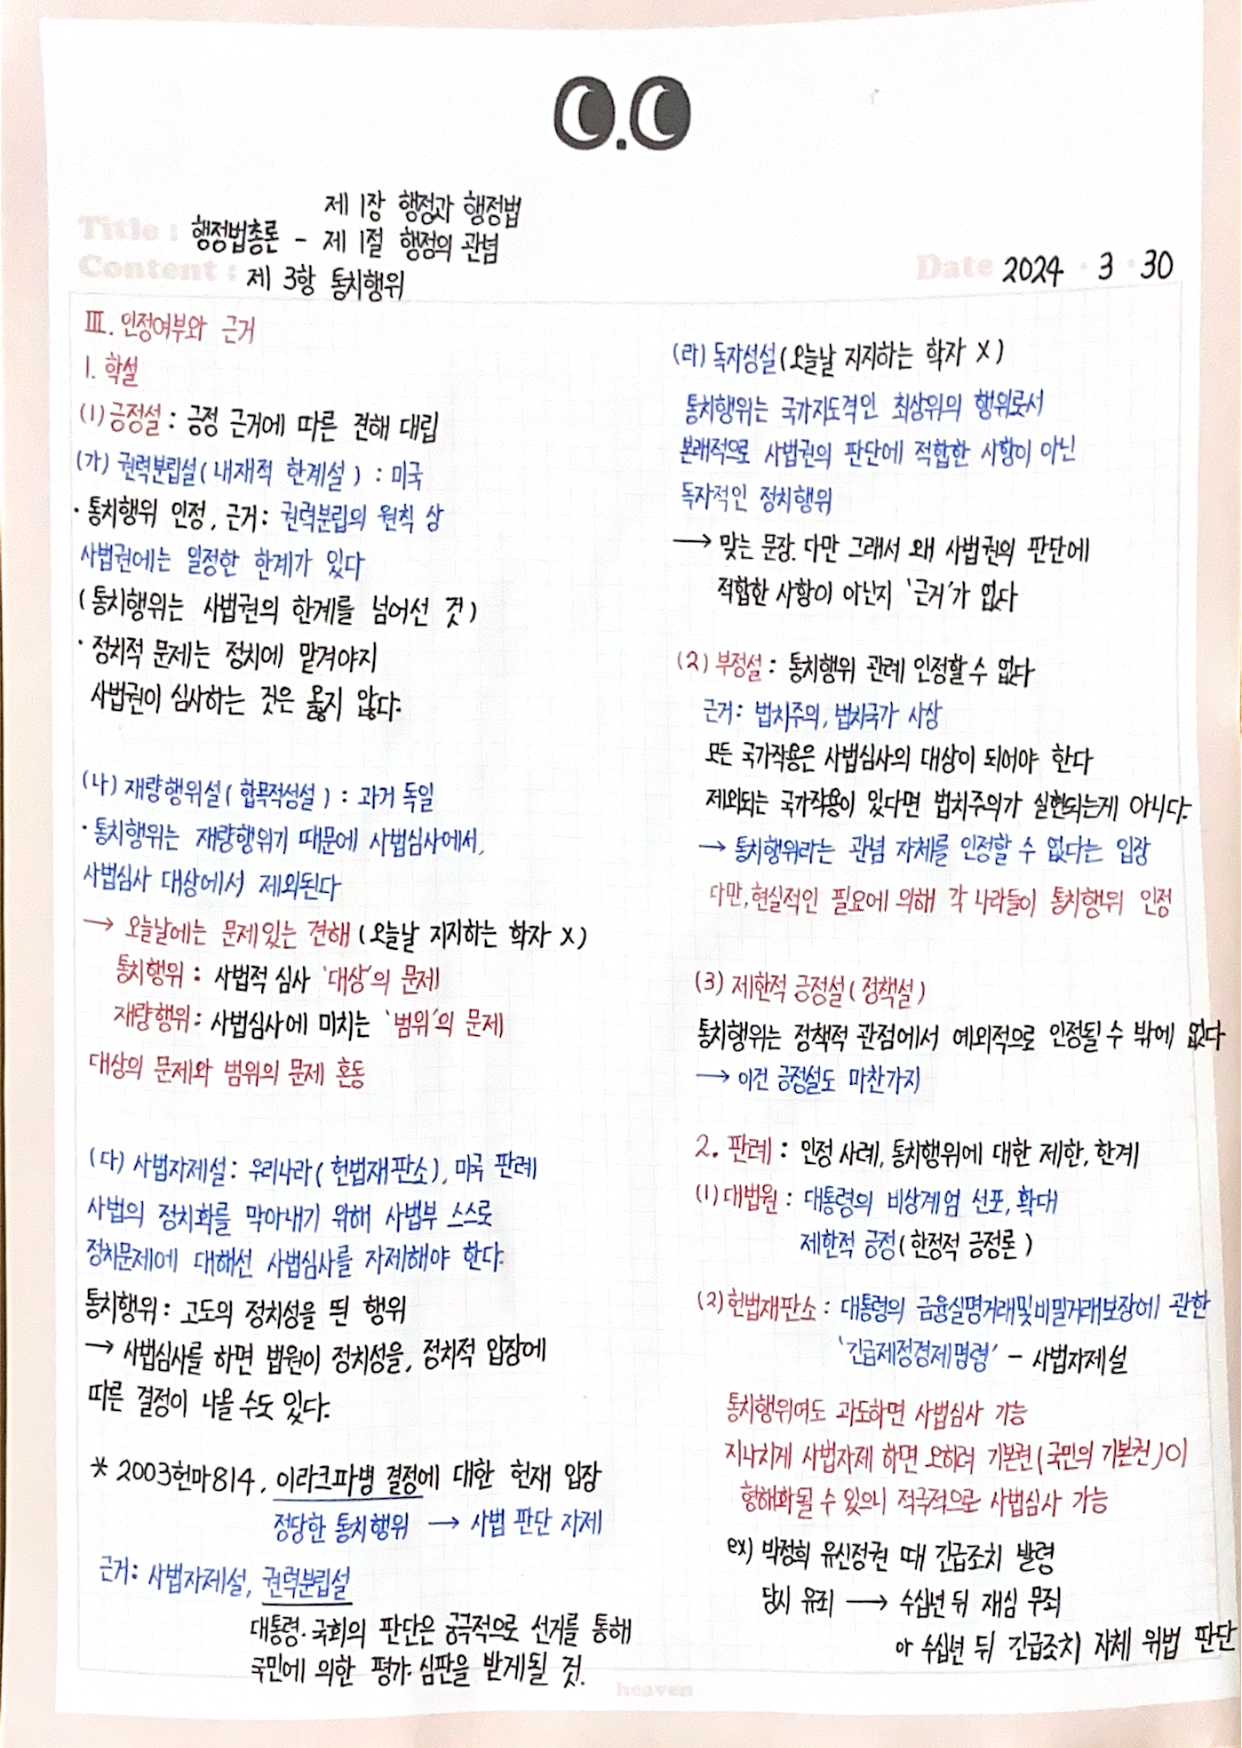 O.O
제 1장 행정과 행정법
Title : 행정법총론 - 제 1절 행정의 관념
Content : 제 3항 통치행위
Date 2024 · 3 · 30
Ⅲ. 인정여부와 근거
1. 학설
(1) 긍정설 : 긍정 근거에 따른 견해 대립
(가) 권력분립설 ( 내재적 한계설 ) : 미국
· 통치행위 인정, 근거: 권력분립의 원칙 상
사법권에는 일정한 한계가 있다
( 통치행위는 사법권의 한계를 넘어선 것 )
· 정치적 문제는 정치에 맡겨야지
사법권이 심사하는 것은 옳지 않다.
(나) 재량행위설 ( 합목적성설 ) : 과거 독일
· 통치행위는 재량행위기 때문에 사법심사에서,
사법심사 대상에서 제외된다
→ 오늘날에는 문제있는 견해 (오늘날 지지하는 학자 X)
통치행위 : 사법적 심사 '대상'의 문제
재량행위 : 사법심사에 미치는 '범위'의 문제
대상의 문제와 범위의 문제 혼동
(다) 사법자제설 : 우리나라( 헌법재판소), 미국 판례
사법의 정치화를 막아내기 위해 사법부 스스로
정치문제에 대해선 사법심사를 자제해야 한다.
통치행위 : 고도의 정치성을 띈 행위
→ 사법심사를 하면 법원이 정치성을, 정치적 입장에
따른 결정이 나올 수도 있다.
* 2003헌마814, 이라크파병 결정에 대한 헌재 입장
정당한 통치행위 → 사법 판단 자제
근거: 사법자제설, 권력분립설
대통령·국회의 판단은 궁극적으로 선거를 통해
국민에 의한 평가·심판을 받게될 것.
(라) 독자성설 (오늘날 지지하는 학자 X)
통치행위는 국가지도적인 최상위의 행위로서
본래적으로 사법권의 판단에 적합한 사항이 아닌
독자적인 정치행위
→ 맞는 문장. 다만 그래서 왜 사법권의 판단에
적합한 사항이 아닌지 '근거'가 없다
(2) 부정설 : 통치행위 관례 인정할 수 없다
근거 : 법치주의, 법치국가 사상
모든 국가작용은 사법심사의 대상이 되어야 한다
제외되는 국가작용이 있다면 법치주의가 실현되는게 아니다.
→ 통치행위라는 관념 자체를 인정할 수 없다는 입장
다만, 현실적인 필요에 의해 각 나라들이 통치행위 인정
(3) 제한적 긍정설 ( 정책설 )
통치행위는 정책적 관점에서 예외적으로 인정될 수 밖에 없다
→ 이건 긍정설도 마찬가지
2. 판례 : 인정 사례, 통치행위에 대한 제한, 한계
(1) 대법원 : 대통령의 비상계엄 선포, 확대
제한적 긍정 ( 한정적 긍정론 )
(2) 헌법재판소 : 대통령의 금융실명거래및비밀거래보장에 관한
'긴급제정경제명령' - 사법자제설
통치행위여도 과도하면 사법심사 가능
지나치게 사법자제 하면 오히려 기본권 ( 국민의 기본권 )이
형해화될 수 있으니 적극적으로 사법심사 가능
ex) 박정희 유신정권 때 긴급조치 발령
당시 유죄 → 수십년 뒤 재심 무죄
아 수십년 뒤 긴급조치 자체 위법 판단
heaven